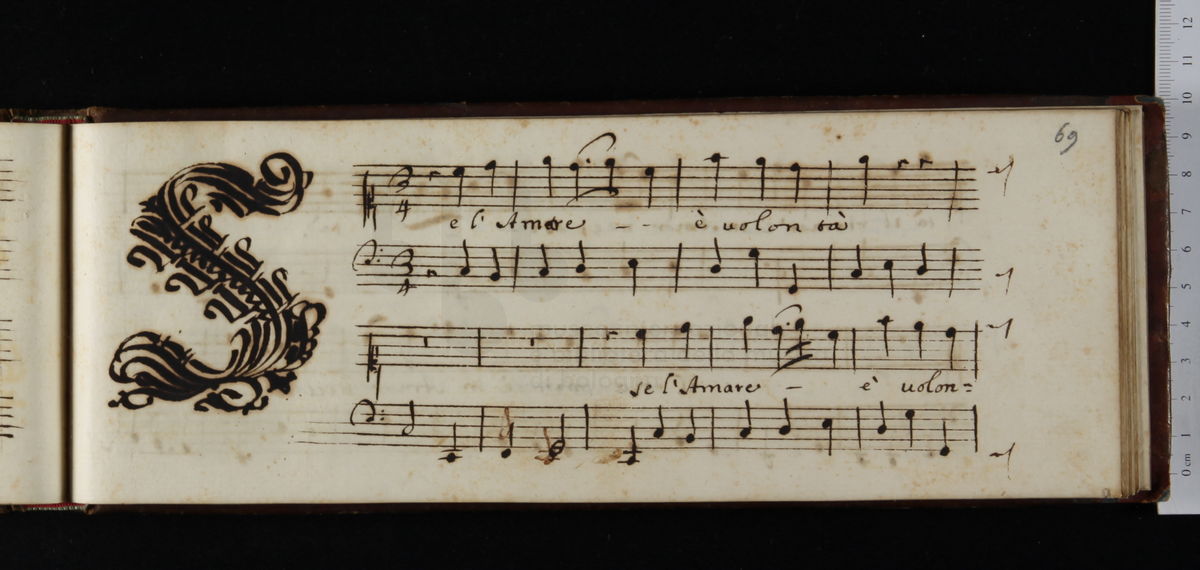 69
S
3
4
e l'Amare - - è volon tà
3
4
se l'Amare - è volon=
0 cm 1 2 3 4 5 6 7 8 9 10 11 12